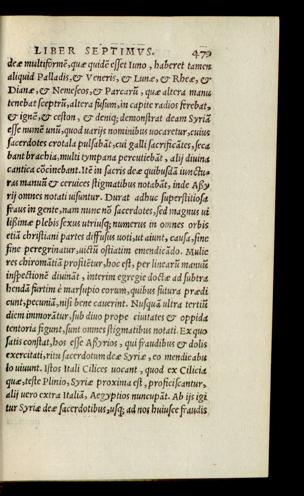 LIBER SEPTIMVS. 479
deæ multiformẽ, quæ quidẽ esset Iuno, haberet tamen
aliquid Palladis, & Veneris, & Lunæ, & Rheæ, &
Dianæ, & Nemeseos, & Parcarũ, quæ altera manu
tenebat sceptrũ, altera fusum, in capite radios ferebat,
& ignẽ, & ceston, & deniq; demonstrat deam Syriã
esse numẽ unũ, quod uarijs nominibus uocaretur, cuius
sacerdotes crotala pulsabãt, cui galli sacrificãtes, seca
bant brachia, multi tympana percutiebãt, alij diuina
cantica cõcinebant. Itẽ in sacris deæ quibusdã iunctu-
ras manuũ & ceruices stigmatibus notabãt, inde Aßy
rij omnes notati uisuntur. Durat adhuc superstitiosa
fraus in gente, nam nunc nõ sacerdotes, sed magnus ui
lißimæ plebis sexus utriusq; numerus in omnes orbis
etiã christiani partes diffusus uoti, ut aiunt, causa, sine
fine peregrinatur, uictũ ostiatim emendicãdo. Mulie
res chiromãtiã profitẽtur, hoc est, per linearũ manuũ
inspectionẽ diuinãt, interim egregie doctæ ad subtra
hendã furtim è marsupio eorum, quibus futura prædi
cunt, pecuniã, nisi bene cauerint. Nusquã ultra tertiũ
diem immorãtur, sub diuo prope ciuitates & oppida
tentoria figunt, sunt omnes stigmatibus notati. Ex quo
satis constat, hos esse Aßyrios, qui fraudibus & dolis
exercitati, ritu sacerdotum deæ Syriæ, eo mendicabu
lo uiuunt. Istos Itali Cilices uocant, quod ex Cilicia
quæ, teste Plinio, Syriæ proxima est, proficiscantur,
alij uero extra Italiã, Aegyptios nuncupãt. Ab ijs igi
tur Syriæ deæ sacerdotibus, usq; ad nos huiusce fraudis